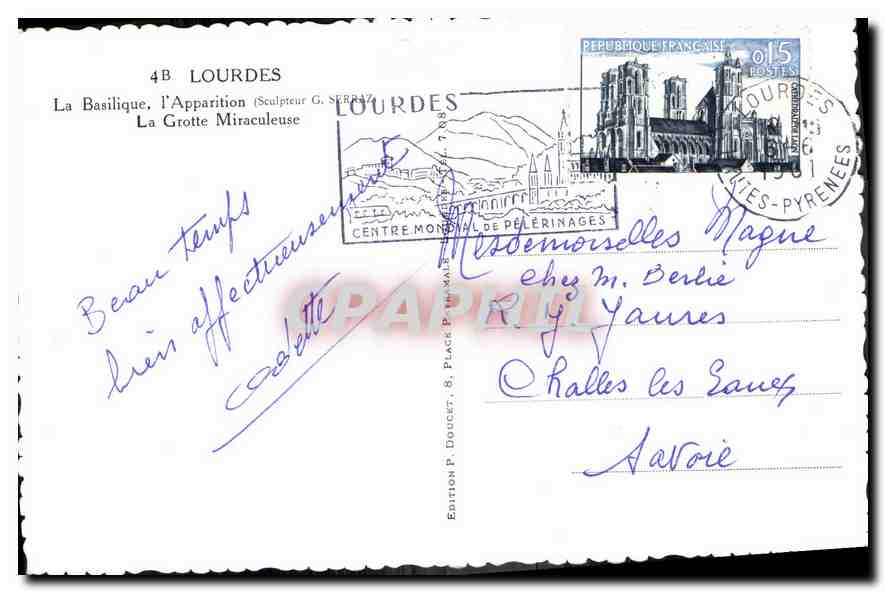 4B LOURDES
La Basilique, l'Apparition (Sculpteur G. SERRAZ)
La Grotte Miraculeuse
LOURDES
CENTRE MONDIAL DE PÉLERINAGES
REPUBLIQUE FRANÇAISE
0,15
POSTES
CATHÉDRALE DE LAON
LOURDES
1961
HTES-PYRENEES
Beau temps
bien affectueusement
Odette
EDITION P. DOUCET, 8, PLACE PEYRAMALE, LOURDES. TÉL. 7.08
Mesdemoiselles Magne
chez M. Berlie
R. J Jaures
Challes les Eaux
Savoie
CPAPHIL